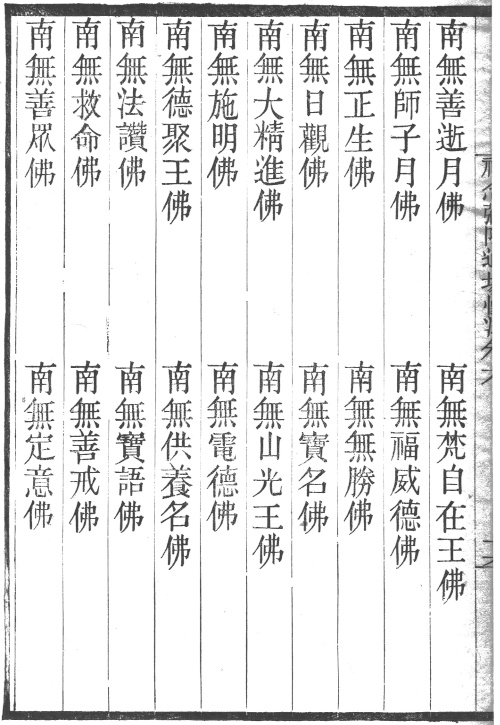 南無善逝月佛　南無梵自在王佛
南無師子月佛　南無福威德佛
南無正生佛　南無無勝佛
南無日觀佛　南無寶名佛
南無大精進佛　南無山光王佛
南無施明佛　南無電德佛
南無德聚王佛　南無供養名佛
南無法讚佛　南無寶語佛
南無救命佛　南無善戒佛
南無善眾佛　南無定意佛